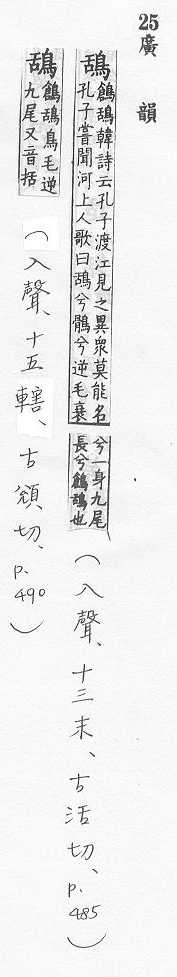 25廣韻
鴰鶬鴰韓詩云孔子渡江見之異眾莫能名
孔子嘗聞河上人歌曰鴰兮鶻兮逆毛衰
兮一身九尾
長兮鶬鴰也
(入聲、十三末、古活切、p.485)
鴰鶬鴰鳥毛逆
九尾又音括
(入聲、十五轄、古頒切、p.490)